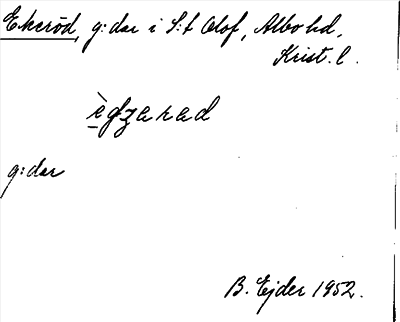 Ekeröd, g:dar i S:t Olof, Albo hd,
Krist. l.
g:dar
B. Ejder 1952.